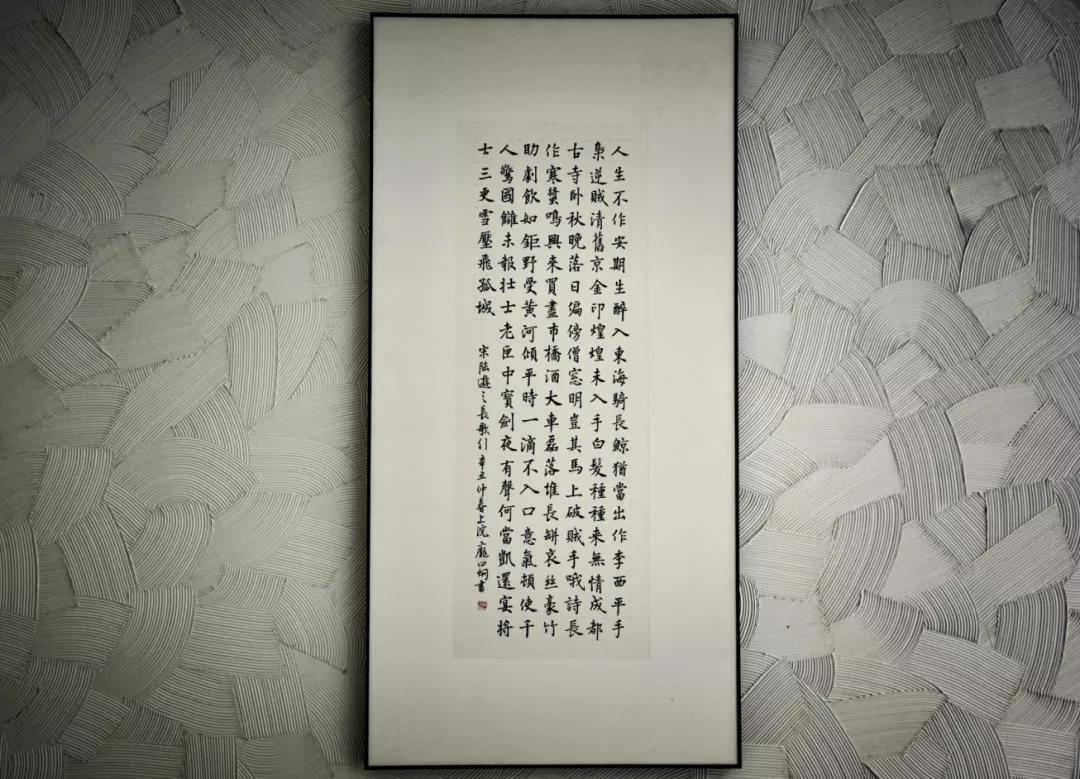 人生不作安期生醉入東海騎長鯨猶當出作李西平手
梟逆賊清舊京金印煌煌未入手白髮種種来無情成都
古寺卧秋晚落日偏傍僧窓明豈其馬上破賊手哦詩長
作寒螿鳴興来買盡市橋酒大車磊落堆長缾哀丝豪竹
助劇飲如鉅野受黄河傾平時一滴不入口意氣頓使千
人驚國讎未報壮士老匣中寳劍夜有聲何當凱還宴将
士三更雪壓飛孤城
宋陸遊之長歌行辛丑仲春上浣龐書